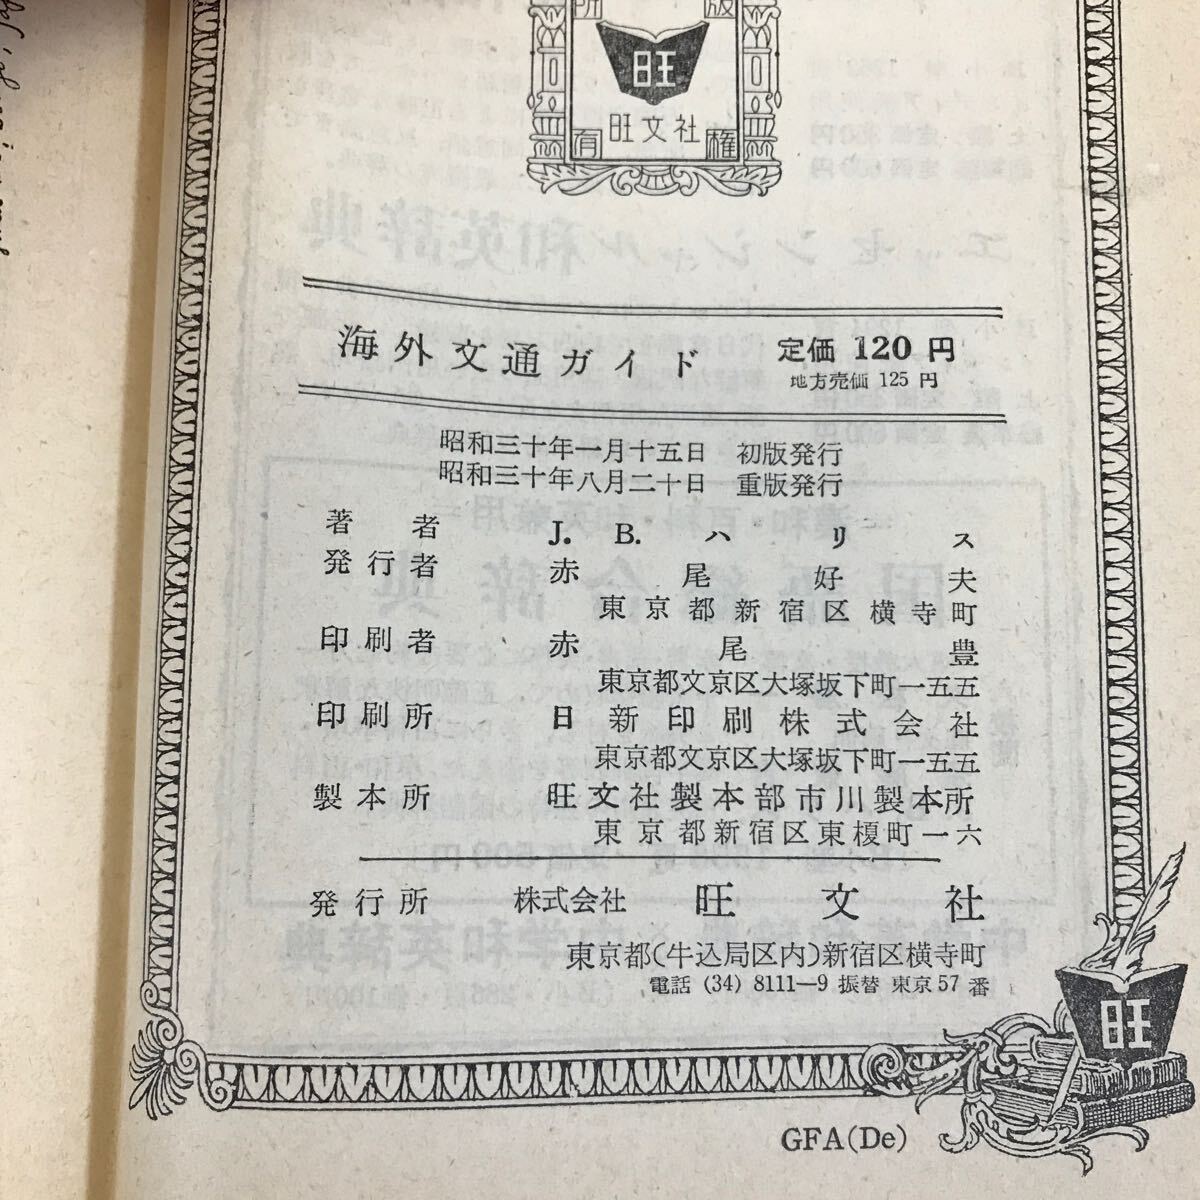 所 版
旺
有 旺文社 権
海外文通ガイド 定価 120 円
地方売価 125 円
昭和三十年一月十五日 初版発行
昭和三十年八月二十日 重版発行
著者 J. B. ハリス
発行者 赤尾好夫
東京都新宿区横寺町
印刷者 赤尾豊
東京都文京区大塚坂下町一五五
印刷所 日新印刷株式会社
東京都文京区大塚坂下町一五五
製本所 旺文社製本部市川製本所
東京都新宿区東榎町一六
発行所 株式会社 旺文社
東京都(牛込局区内)新宿区横寺町
電話 (34) 8111—9 振替 東京 57 番
旺
GFA(De)